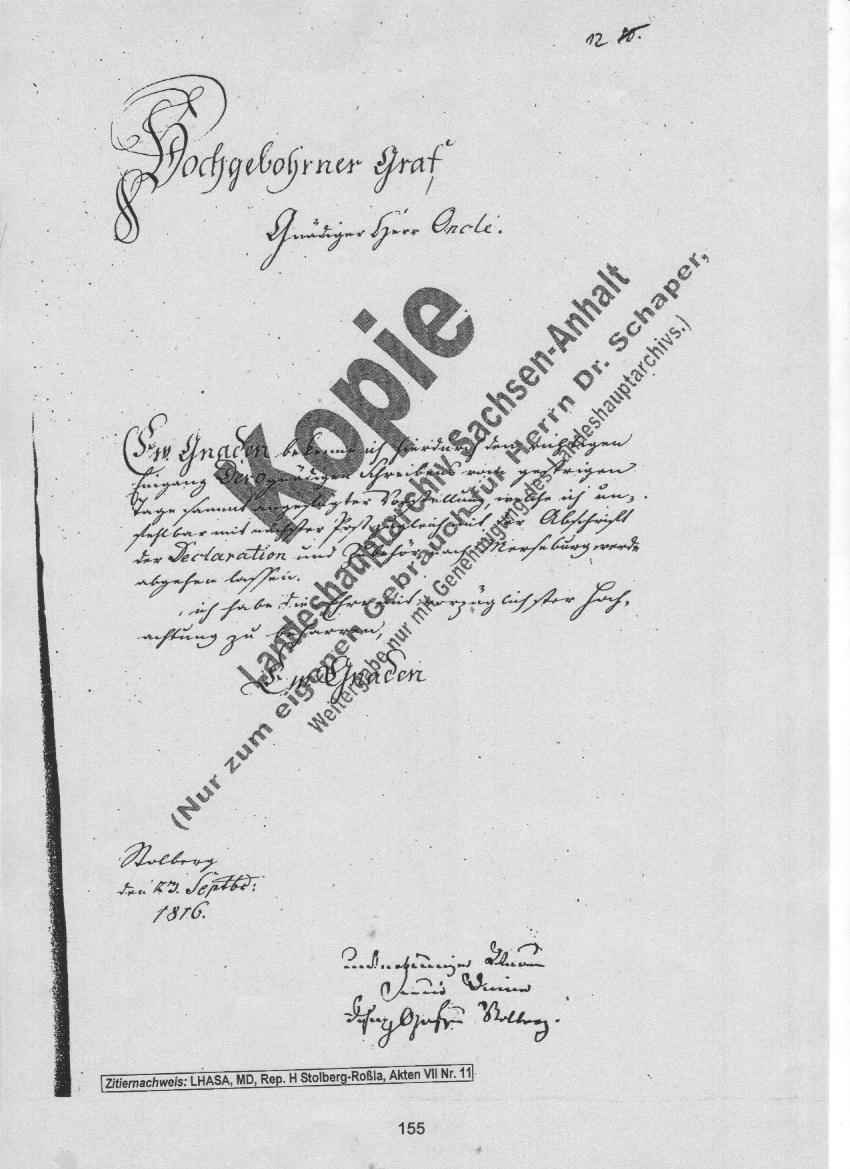 12
Hochgebohrner Graf,
Gnädiger Herr Oncle.
Kopie
Landeshauptarchiv Sachsen-Anhalt
(Nur zum eigenen Gebrauch für Herrn Dr. Schaper,
Weitergabe nur mit Genehmigung des Landeshauptarchivs.)
Ew. Gnaden bekenne ich hierdurch den richtigen
Eingang Dero gnädigen Schreibens vom gestrigen
Tage sammt angefügter Vorstellung, welche ich un-
fehlbar mit nächster Post zugleich mit der Abschrift
der Declaration und Zubehör nach Merseburg werde
abgehen lassen.
ich habe die Ehre mit vorzüglichster Hoch-
achtung zu beharren,
Ew. Gnaden
Stolberg
den 23. Septbr:
1816.
Stolberg.
Zitiernachweis: LHASA, MD, Rep. H Stolberg-Roßla, Akten VII Nr. 11
155